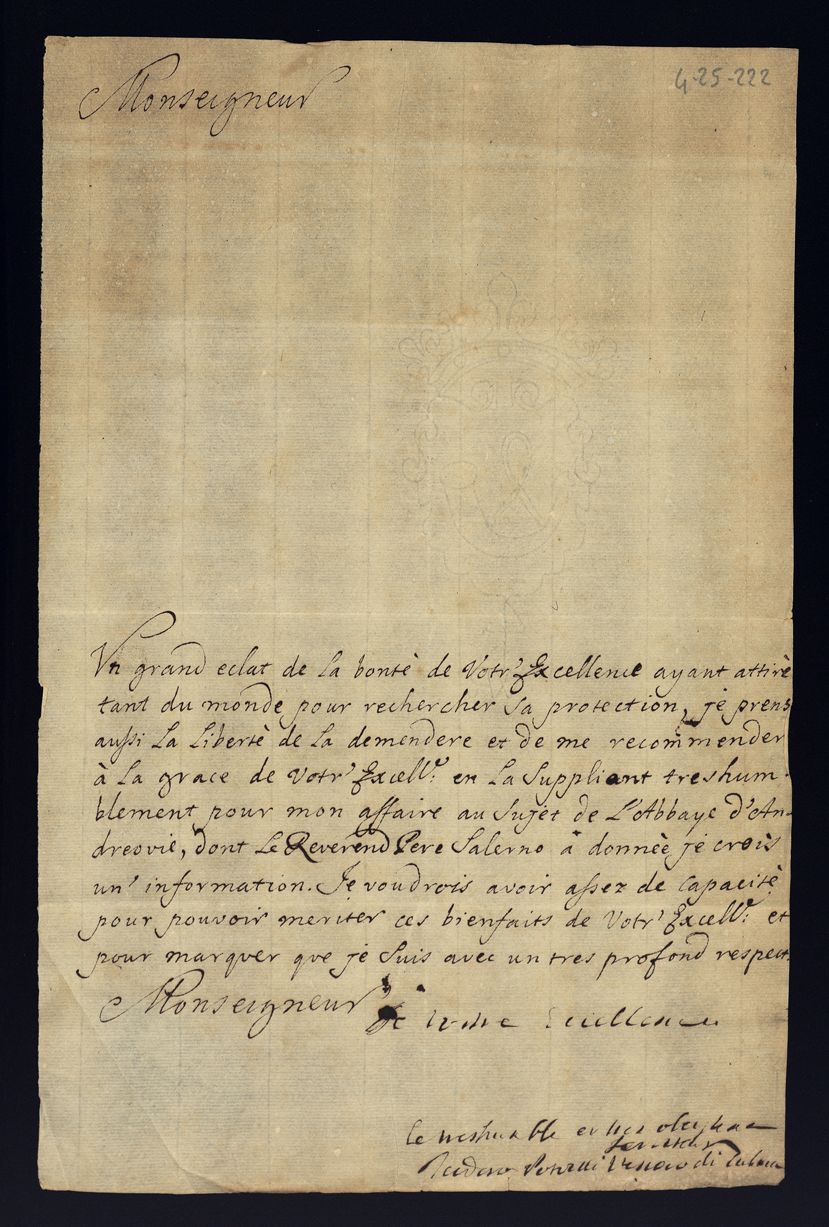 4-25-222
Monseigneur
Vn grand eclat de la bontè de Votr' Excellence ayant attirè
tant du monde pour rechercher sa protection, je prens
aussi la libertè de la demendere et de me recommender
à la grace de Votr' Excell.e en la suppliant treshum-
blement pour mon affaire au sujet de l'Abbaye d'An-
dreovie, dont le Reverend Pere Salerno à donnèe je crois
un' information. Je voudrois avoir assez de capacitè
pour pouvoir meriter ces bienfaits de Votr' Excell.e et
pour marquer que je suis avec un tres profond respect.
Monseigneur de votre Excellence
le treshumble et tres obeissant
serviteur